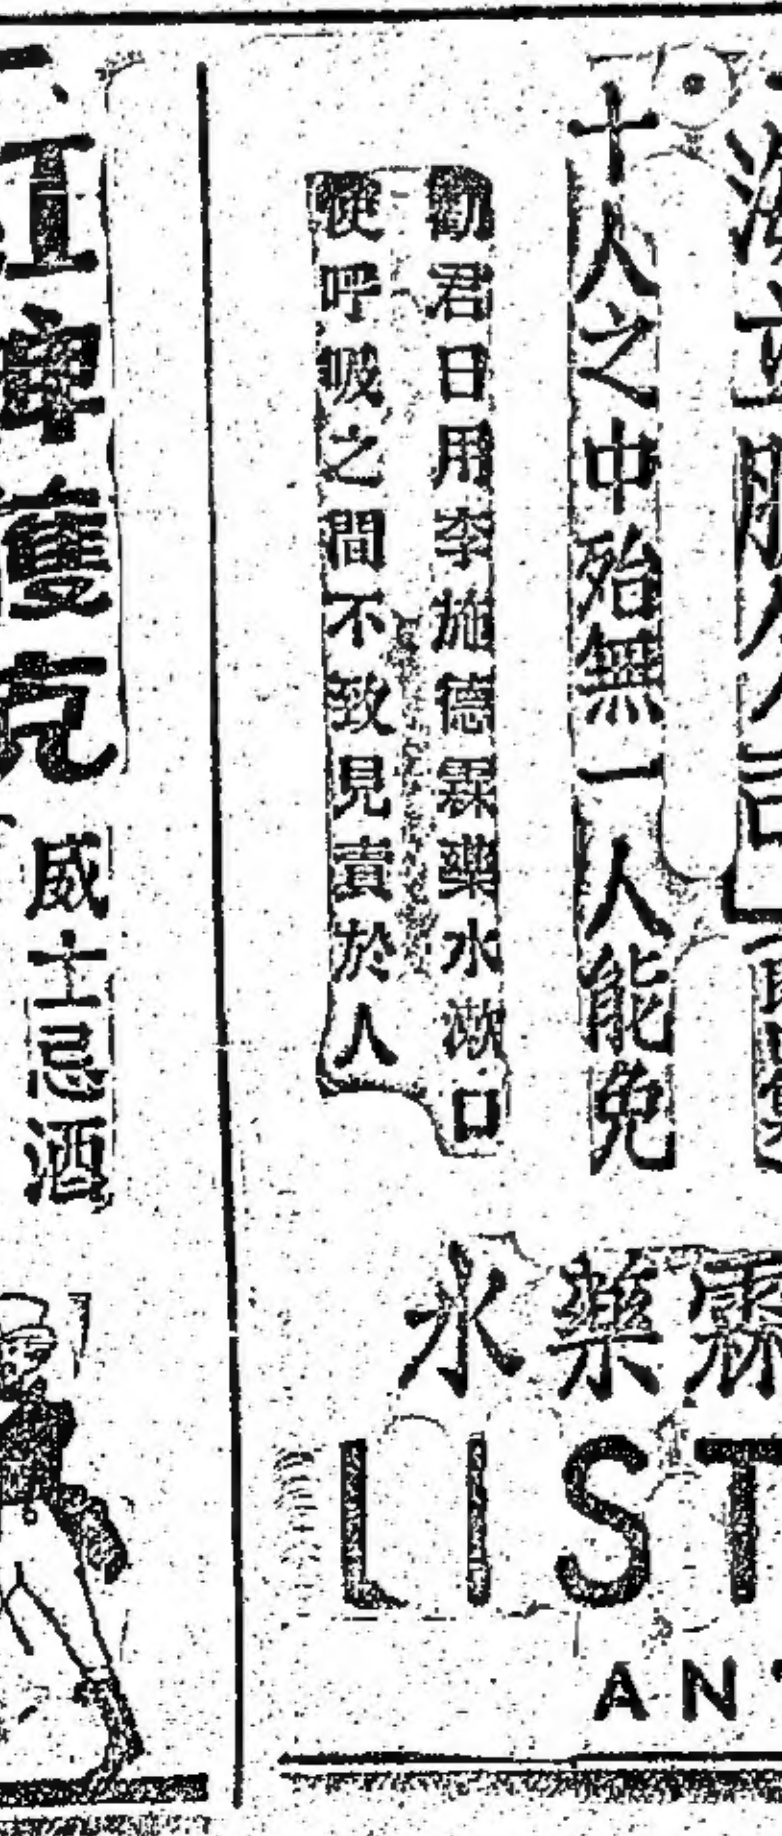 十人之中殆無一人能免
勸君日用李施德霖藥水漱口
使呼吸之間不致見責於人
霖藥水
LIST
AN
紅牌隻克
威士忌酒